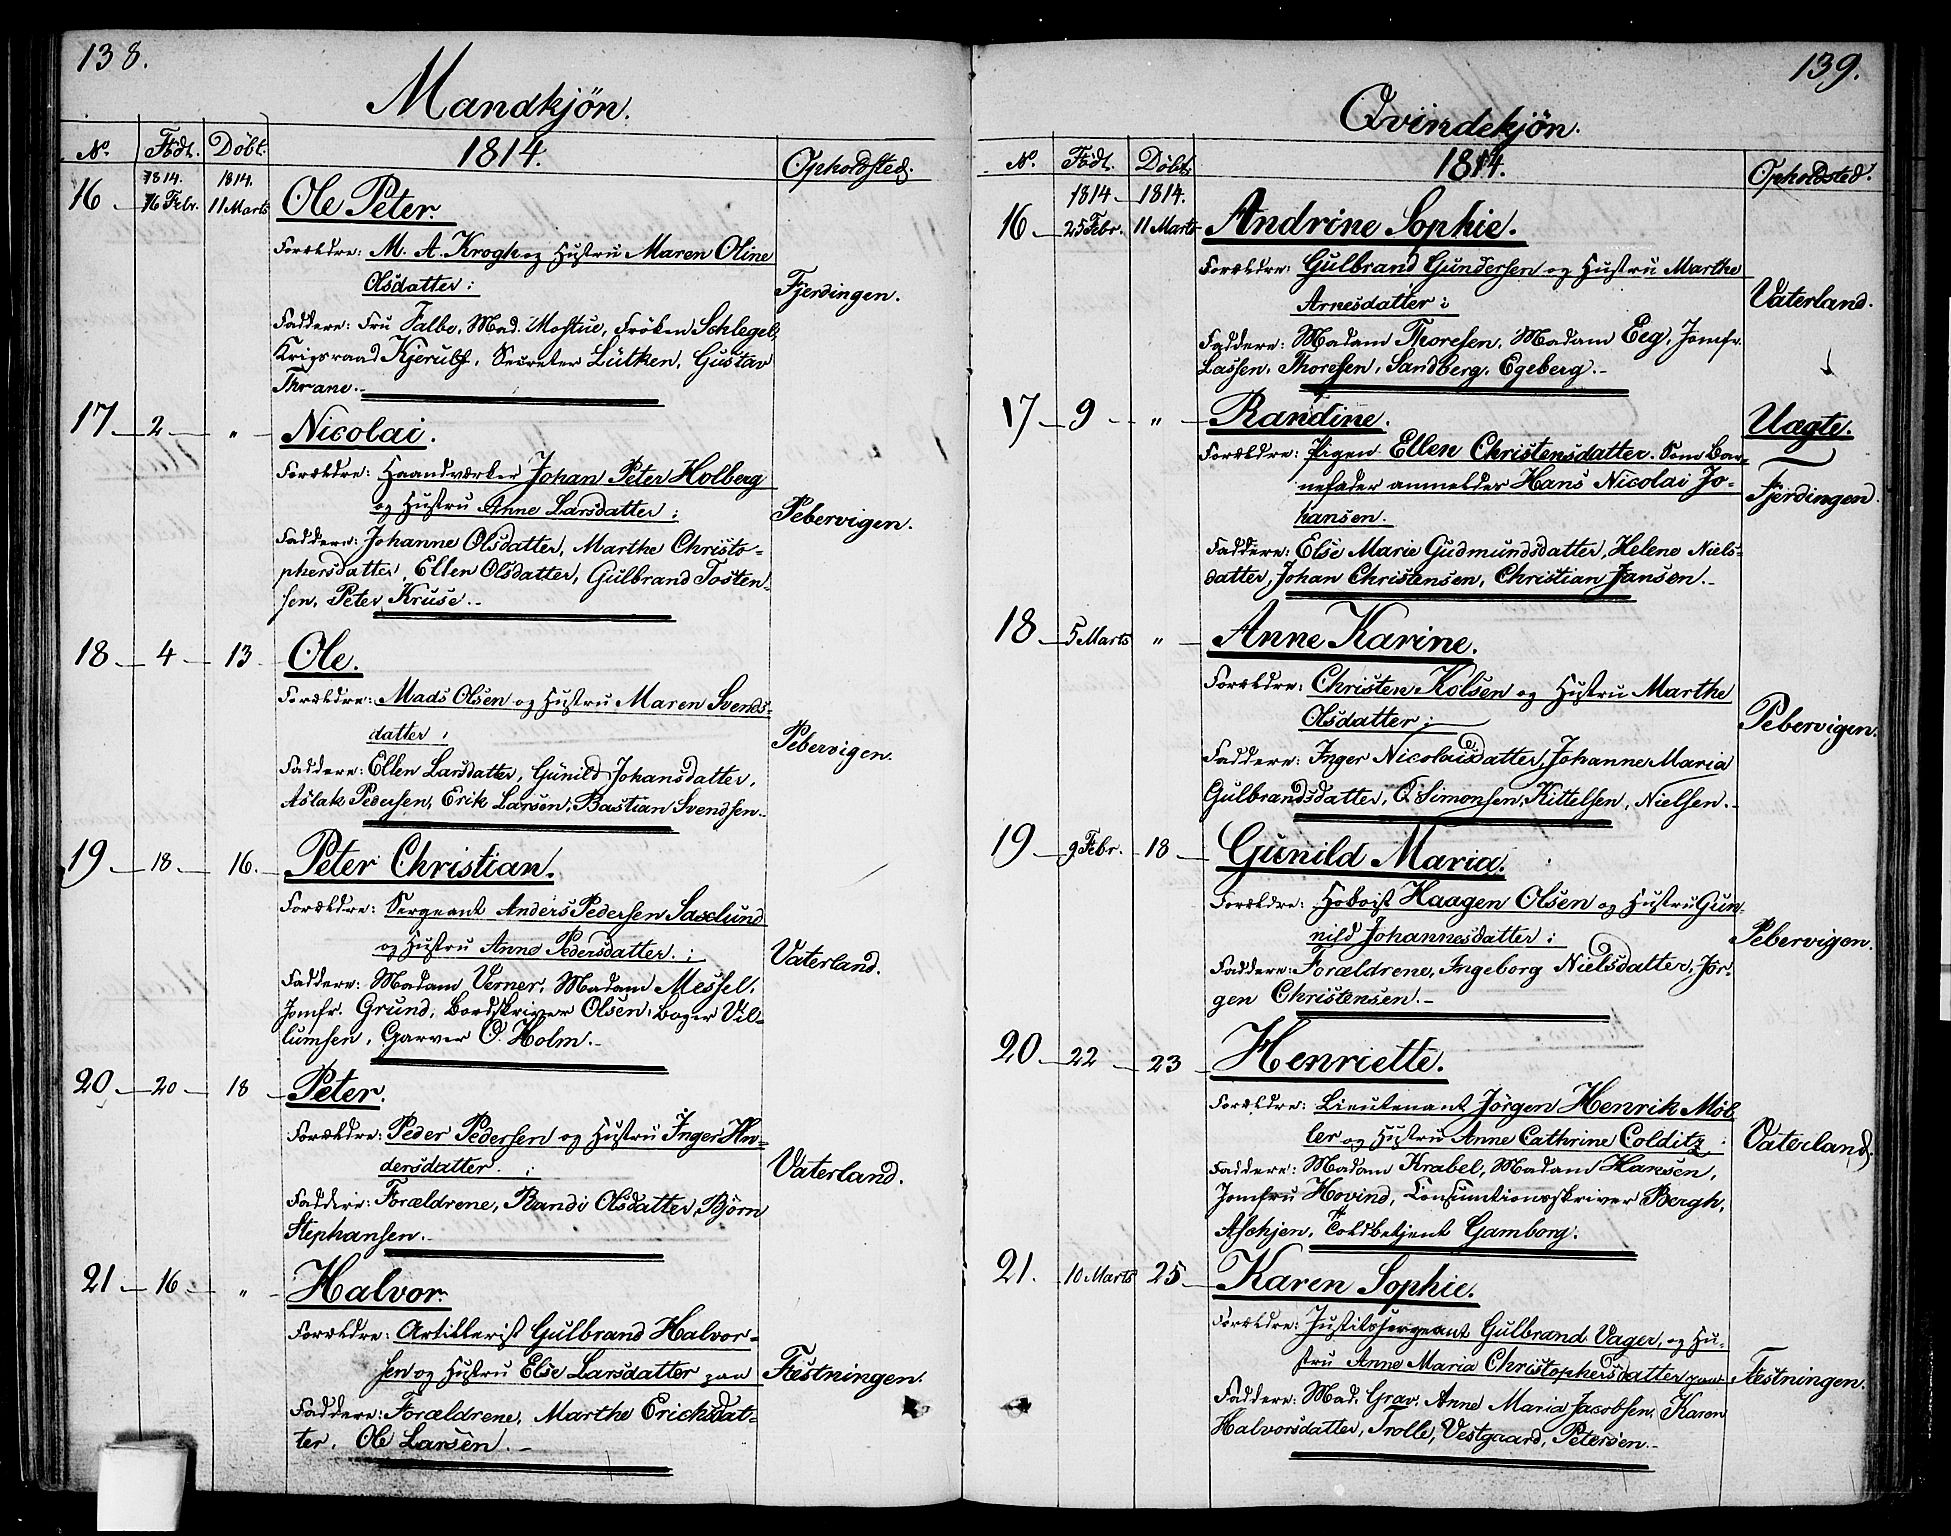 138.
Mandkjön.
No. Födt. Döbt. 1814. Opholdsted.
1814. 1814.
16 16 Febr. 11 Marts Ole Peter.
Forældre: M. A. Krogh og Hustru Maren Oline
Olsdatter:
Fjerdingen.
Faddere: Fru Falbe, Mad. Mostue, Fröken Schlegel,
Krigsraad Kjerulf, Secreter Lütken, Gustav
Thrane.-
17 2 " Nicolai.
Forældre: Haandværker Johan Peter Holberg
og Hustru Anne Larsdatter:
Pebervigen.
Faddere: Johanne Olsdatter, Marthe Christo-
phersdatter, Ellen Olsdatter, Gulbrand Tosten-
sen, Peter Kruse.-
18 4 13 Ole.
Forældre: Mads Olsen og Hustru Maren Svends-
datter:
Pebervigen.
Faddere: Ellen Larsdatter, Gunild Johansdatter,
Aslak Pedersen, Erik Larsen, Bastian Svendsen.-
19 18 16. Peter Christian.
Forældre: Sergeant Anders Pedersen Saxlund
og Hustru Anne Pedersdatter.:
Vaterland.
Faddere: Madam Verner, Madam Messel,
Jomfr. Grund, Bordskriver Olsen, Bager Vil-
lumsen, Garver O. Holm.-
20 20 18 Peter.
Forældre: Peder Pedersen og Hustru Inger An-
dersdatter.:
Vaterland.
Faddere: Forældrene, Randi Olsdatter, Björn
Stephansen.-
21 16 " Halvor.
Forældre: Artillerist Gulbrand Halvor-
sen og Hustru Else Larsdatter paa
Fæstningen.
Faddere: Forældrene, Marthe Ericksdat-
ter, Ole Larsen.-
139.
Qvindekjön.
No. Födt. Döbt. 1814. Opholdsted.
1814 1814.
16 25 Febr. 11 Marts Andrine Sophie.
Forældre: Gulbrand Gundersen og Hustru Marthe
Arnesdatter:
Vaterland.
Faddere: Madam Thoresen, Madam Eeg, Jomfr.
Lassen, Thoresen, Sandberg, Egeberg.-
17 9 " Randine. Uægte.
Forældre: Pigen Ellen Christensdatter. Som Bar-
nefader anmelder Hans Nicolai Jo-
hansen.
Fjerdingen.
Faddere: Else Marie Gudmundsdatter, Helene Niels-
datter, Johan Christensen, Christian Jansen.-
18 5 Marts " Anne Karine.
Forældre: Christen Kolsen og Hustru Marthe
Olsdatter:
Pebervigen.
Faddere: Inger Nicolaisdatter, Johanne Maria
Gulbrandsdatter, O. Simonsen, Kittelsen, Nielsen.-
19 9 Febr. 18 Gunild Maria.
Forældre: Hoboist Haagen Olsen og Hustru Gun-
nild Johannesdatter:
Pebervigen.
Faddere: Forældrene, Ingeborg Nielsdatter, Jör-
gen Christensen.-
20 22 23 Henriette.
Forældre: Lieutenant Jörgen Henrik Möl-
ler og Hustru Anne Cathrine Colditz:
Vaterland.
Faddere: Madam Krabel, Madam Hansen,
Jomfru Hovind, Consumtionsskriver Bergh,
Aschjen, Toldbetjent Gamborg.
21. 10 Marts 25 Karen Sophie.
Forældre: Justitssergeant Gulbrand Vager, og Hu-
stru Anne Maria Christophersdatter paa
Fæstningen.
Faddere: Mad. Grav, Anne Maria Jacobsen, Karen
Halvorsdatter, Trolle, Vestgaard, Petersen.-